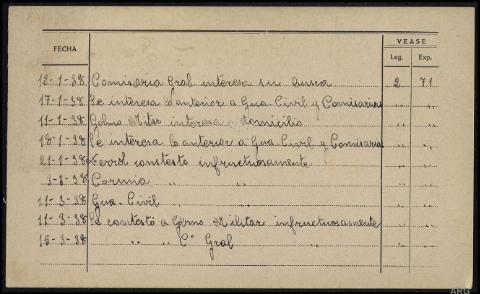 FECHA VEASE
Leg. Exp.
12-1-38 Comisaria Gral interesa su busca 2 71
17-1-38 Se interesa lo anterior a Gua Civil y Comisarias " "
11-1-38 Gobno Militar interesa domicilio " "
18-1-38 Se interesa lo anterior a Gua Civil y Comisaria " "
21-1-38 Ferrol contestó infructuosamente " "
3-2-38 Coruña " " " "
11-3-38 Gua. Civil " " "
11-3-38 Se contestó a Gbrno Militar infructuosamente " "
15-3-38 " " " Cª Gral " "
ARG